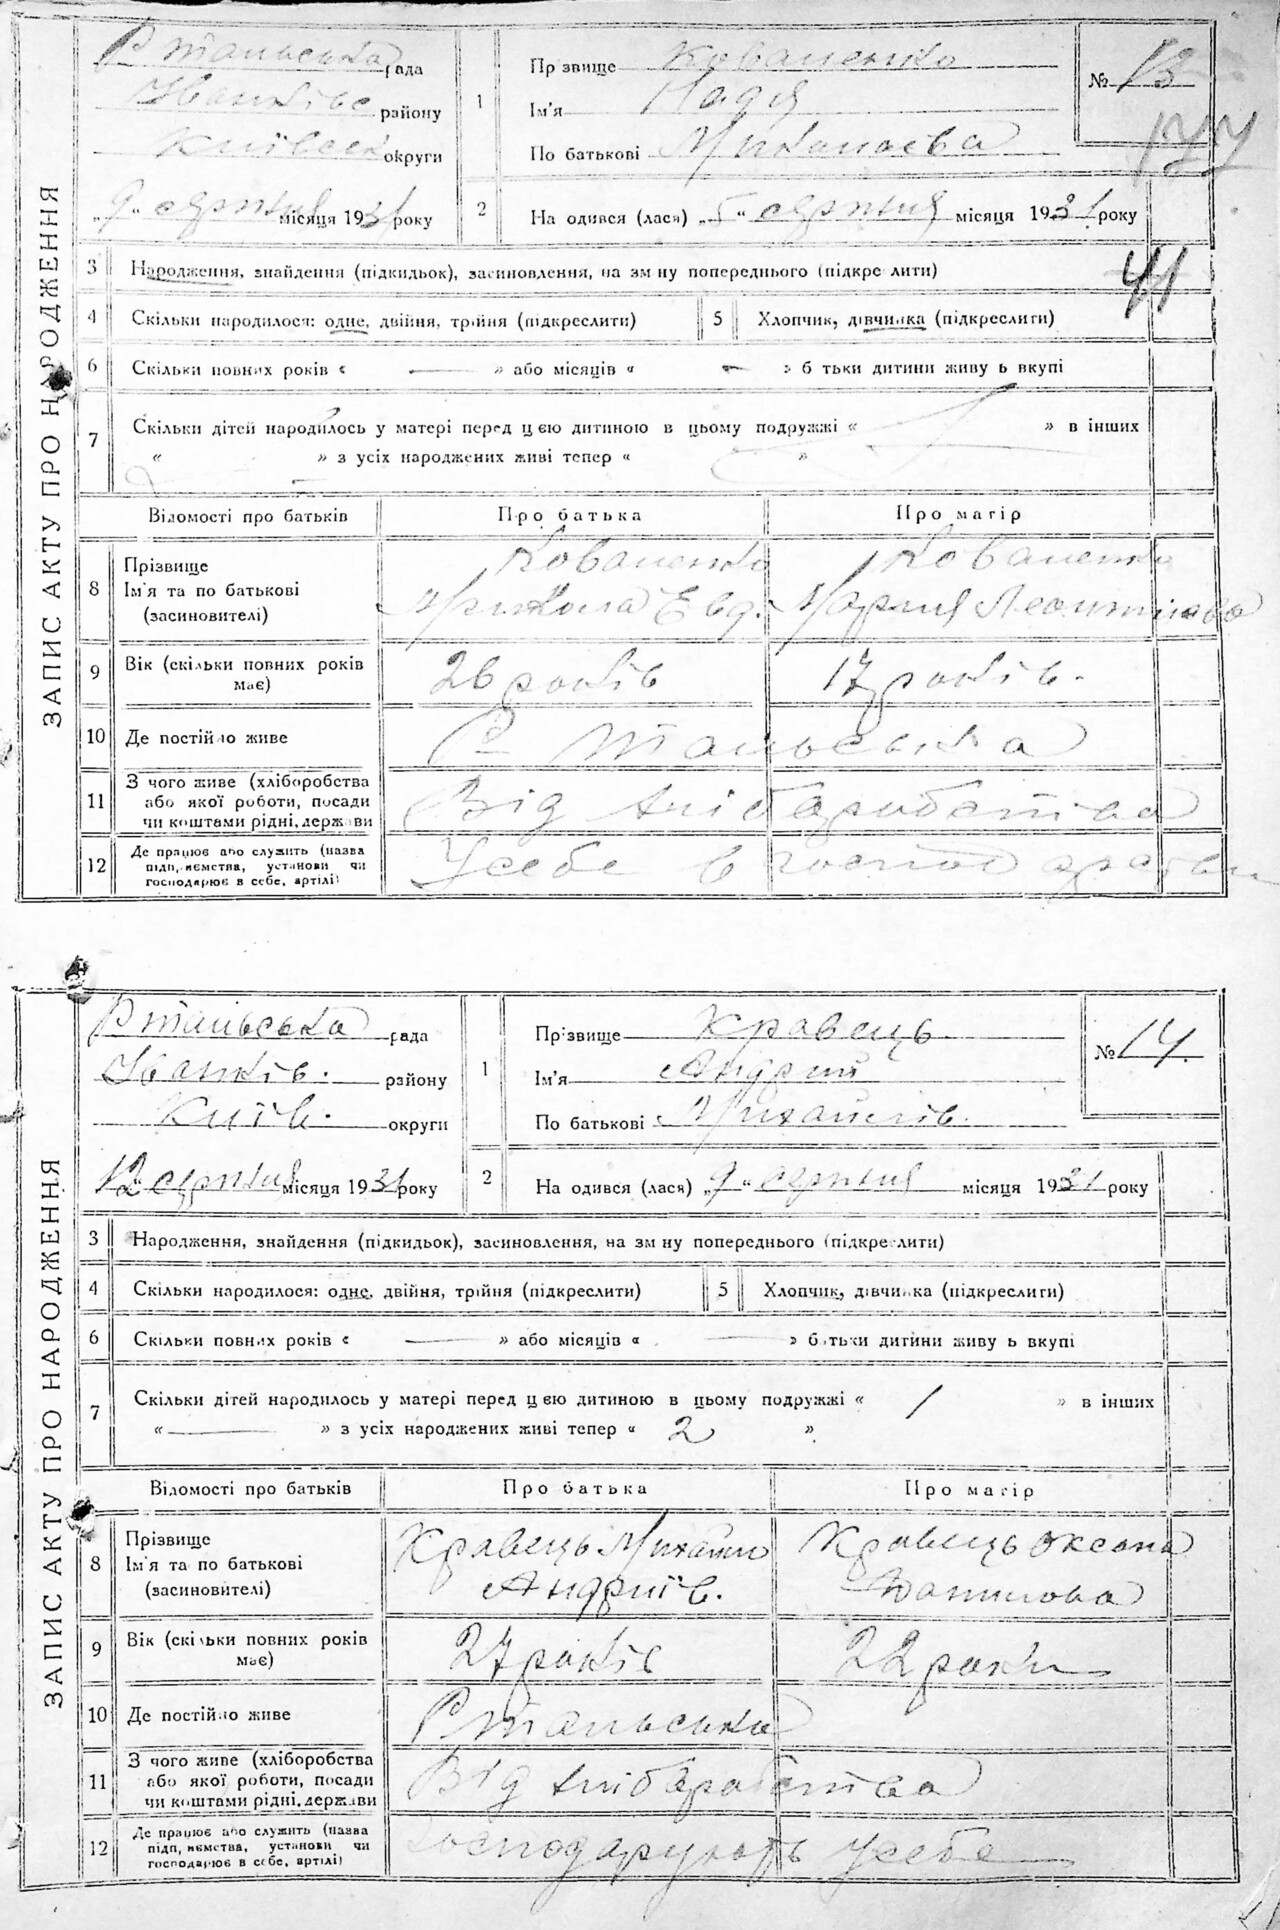 ЗАПИС АКТУ ПРО НАРОДЖЕННЯ
Р Тальська рада
Іванківс району
Київськ округи
„9“ серпня місяця 1931 року
1 Пр звище Коваленко
Ім'я Надя
По батькові Миколаєва
№ 13
177
2 На одився (лася) „5“ серпня місяця 1931 року
3 Народження, знайдення (підкидьок), засиновлення, на зм ну попереднього (підкре лити)
41
4 Скільки народилося: одне, двійня, трійня (підкреслити) 5 Хлопчик, дівчинка (підкреслити)
6 Скільки повних років « — » або місяців « — » б тьки дитини живу ь вкупі
7 Скільки дітей народилось у матері перед цією дитиною в цьому подружжі « » в інших
« » з усіх народжених живі тепер « »
Відомості про батьків Про батька Про матір
8 Прізвище Ім'я та по батькові (засиновителі) Коваленко Микола Евд. Коваленко Мария Леонтіова
9 Вік (скільки повних років має) 26 років 17 років.
10 Де постійно живе Р Тальська
11 З чого живе (хліборобства або якої роботи, посади чи коштами рідні, держави Від хліборобства
12 Де працює або служить (назва підп, иємства, установи чи господарює в себе, артілі) Усебе в господарстві
ЗАПИС АКТУ ПРО НАРОДЖЕННЯ
Р Тальська рада
Іванків. району
Київ. округи
„12“ серпня місяця 1931 року
1 Прізвище Кравець
Ім'я Андрий
По батькові Михайлів.
№ 14.
2 На одився (лася) „9“ серпня місяця 1931 року
3 Народження, знайдення (підкидьок), засиновлення, на зм ну попереднього (підкреслити)
4 Скільки народилося: одне, двійня, трійня (підкреслити) 5 Хлопчик, дівчинка (підкреслити)
6 Скільки повних років « — » або місяців « — » батьки дитини живу ь вкупі
7 Скільки дітей народилось у матері перед цією дитиною в цьому подружжі « 1 » в інших
« — » з усіх народжених живі тепер « 2 »
Відомості про батьків Про батька Про матір
8 Прізвище Ім'я та по батькові (засиновителі) Кравець Михайло Андриїв. Кравець Оксана Данилова
9 Вік (скільки повних років має) 27 років 22 роки
10 Де постійно живе Р Тальська
11 З чого живе (хліборобства або якої роботи, посади чи коштами рідні, держави Від хліборобства
12 Де працює або служить (назва підп, иємства, установи чи господарює в себе, артілі) Господарують усебе